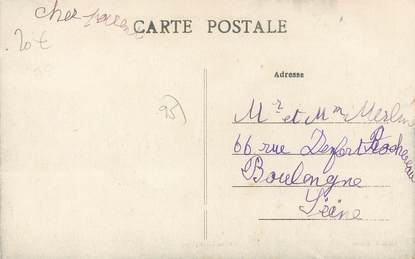 Cher parent
20 €
CARTE POSTALE
Adresse
95
Mr et Mm Merlin
66 rue Denfert Rochereau
Boulongne
Seine